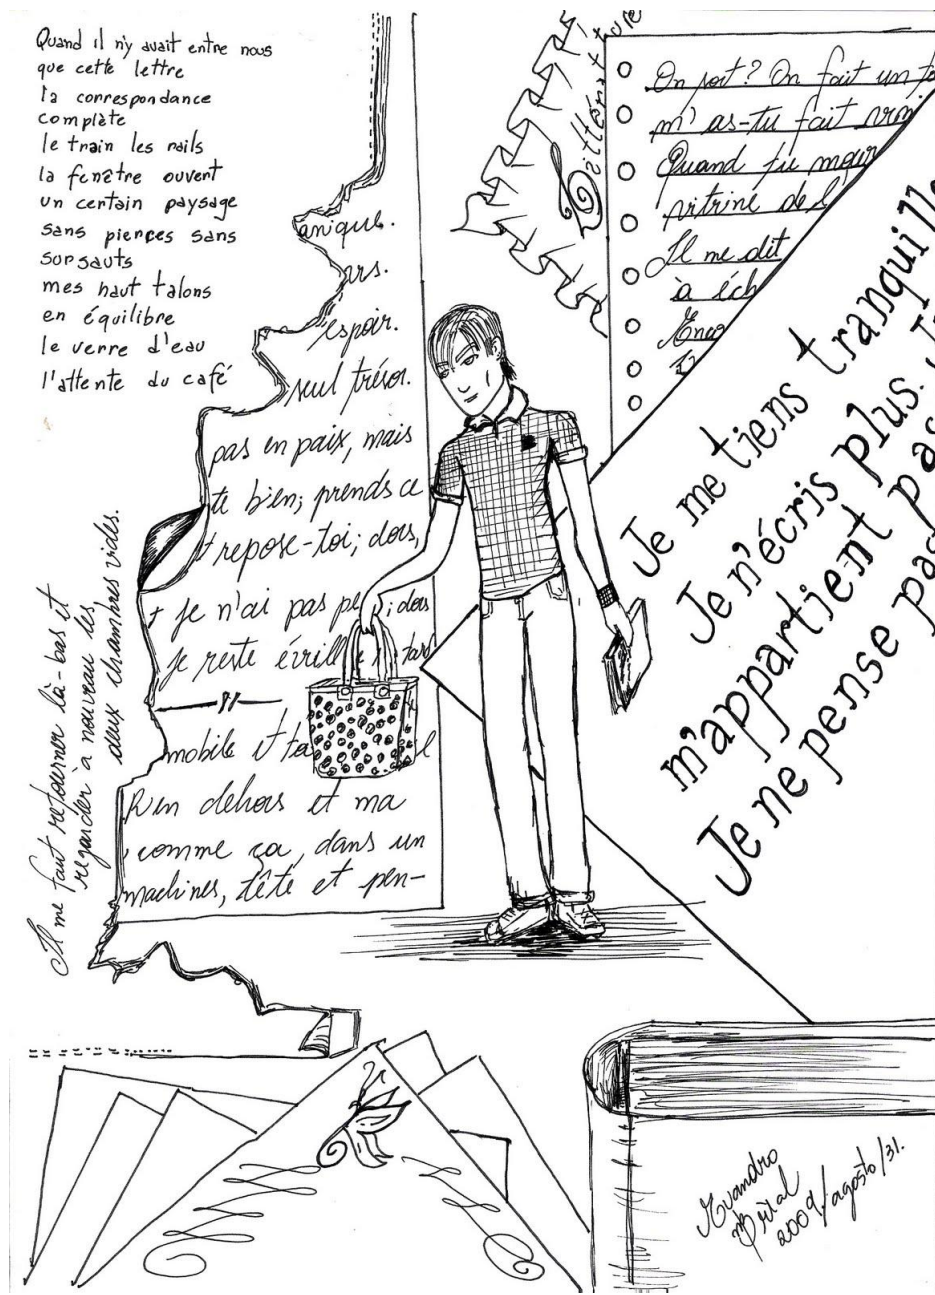 Quand il n'y avait entre nous
que cette lettre
la correspondance
complète
le train les rails
la fenêtre ouvert
un certain paysage
sans pierres sans
sursauts
mes haut talons
en équilibre
le verre d'eau
l'attente du café
Il me faut retourner là-bas et
regarder à nouveau les
deux chambres vides.
anique.
urs.
espoir.
seul trésor.
pas en paix, mais
te bien; prends ce
repose-toi; dors,
je n'ai pas ; dors
je reste éveillé tard
mobile et
Rien dehors et ma
comme ça, dans un
machines, tête et pen-
Littérature
On sort? On fait un to
m'as-tu fait
Quand tu
vitrine de l'
Il me dit
à éch
Enco
Je me tiens tranquille
Je n'écris plus. J
m'appartient pas
Je ne pense pas
Evandro
2009/agosto/31.